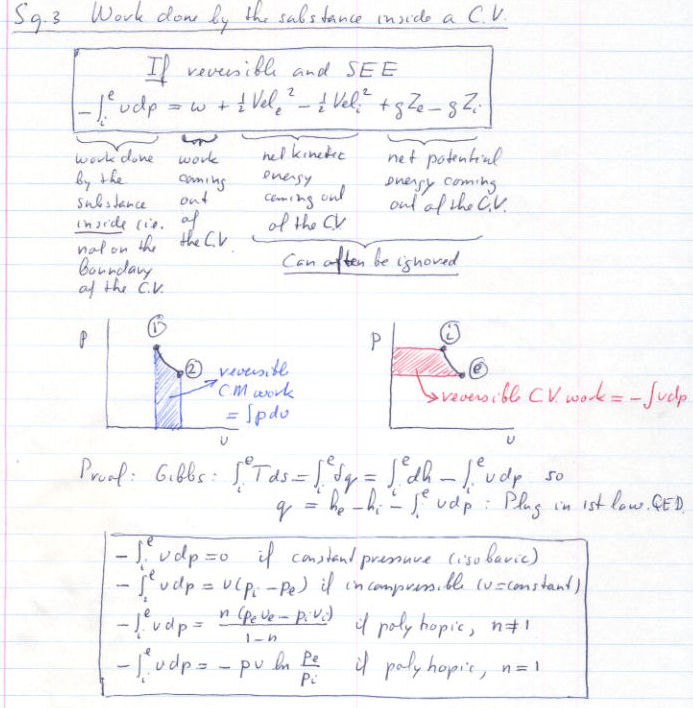 §9.3 Work done by the substance inside a C.V.
If reversible and SEE
-∫ᵢᵉ vdp = w + ½ Velₑ² - ½ Velᵢ² + gZₑ - gZᵢ
work done by the substance inside (i.e. not on the boundary of the C.V.
work coming out of the C.V.
net kinetic energy coming out of the CV
net potential energy coming out of the C.V.
Can often be ignored
p
①
②
v
reversible
CM work
= ∫pdv
p
ⓘ
ⓔ
v
reversible C.V. work = -∫vdp
Proof: Gibbs: ∫ᵢᵉ Tds = ∫ᵢᵉ δq = ∫ᵢᵉ dh - ∫ᵢᵉ vdp so
q = hₑ - hᵢ - ∫ᵢᵉ vdp : Plug in 1st law. QED.
-∫ᵢᵉ vdp = 0 if constant pressure (isobaric)
-∫ᵢᵉ vdp = v(pᵢ - pₑ) if incompressible (v = constant)
-∫ᵢᵉ vdp = n(pₑvₑ - pᵢvᵢ)/(1-n) if polytropic, n≠1
-∫ᵢᵉ vdp = - pv ln pₑ/pᵢ if polytropic, n=1